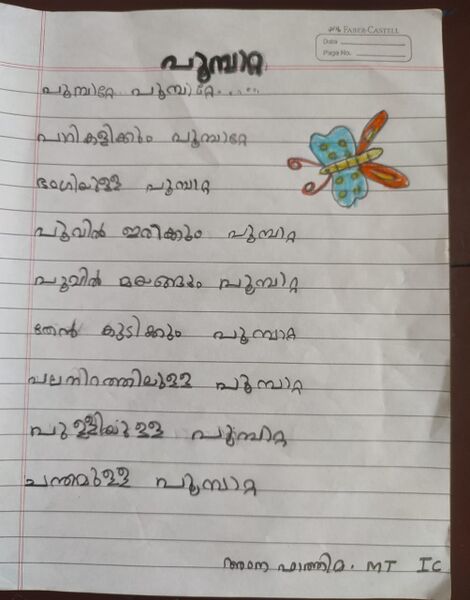 FABER-CASTELL
Date
Page No.
പൂമ്പാറ്റ
പൂമ്പാറ്റേ പൂമ്പാറ്റേ.....
പാറികളിക്കും പൂമ്പാറ്റേ
ഭംഗിയുള്ള പൂമ്പാറ്റ
പൂവിൽ ഇരിക്കും പൂമ്പാറ്റ
പൂവിൽ മയങ്ങും പൂമ്പാറ്റ
തേൻ കുടിക്കും പൂമ്പാറ്റ
പലനിറത്തിലുള്ള പൂമ്പാറ്റ
പുള്ളിയുള്ള പൂമ്പാറ്റ
ചന്തമുള്ള പൂമ്പാറ്റ
ഫാത്തിമ. MT IC